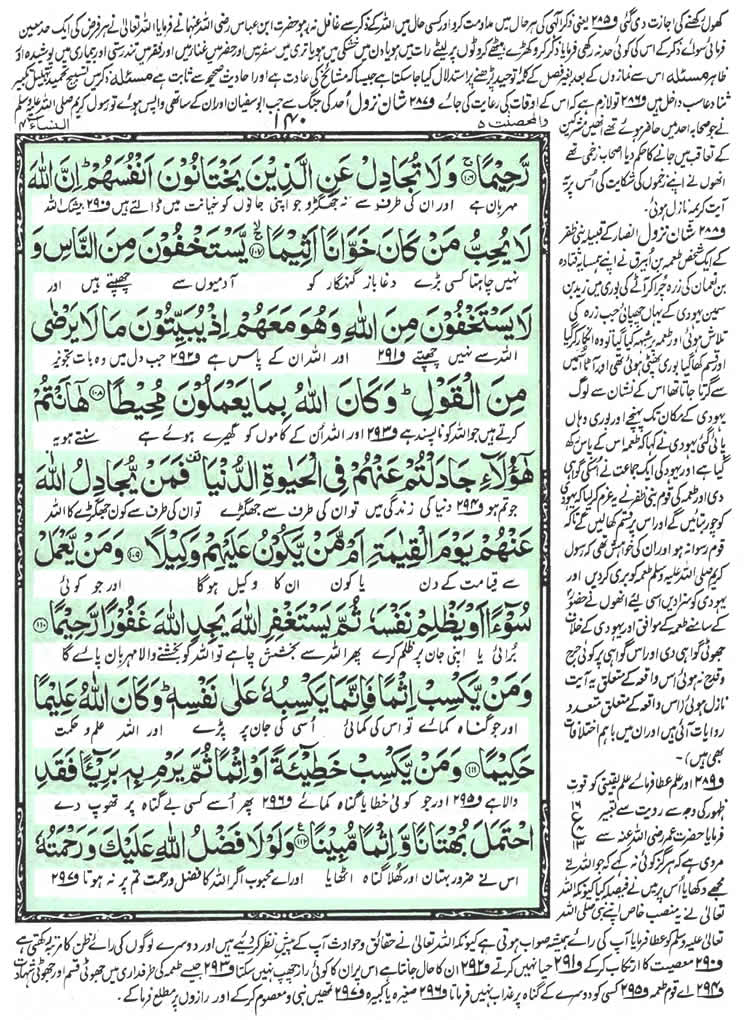 کھول رکھنے کی اجازت دی گئی ف۲۸۵ یعنی ذکر الٰہی کی ہر حال میں مداومت کرو اور کسی حال میں اللہ کے ذکر سے غافل نہ رہو حضرت ابن عباس رضی اللہ عنہما نے فرمایا اللہ تعالیٰ نے ہر فرض کی ایک حد معین
فرمائی سوائے ذکر کے اس کی کوئی حد نہ رکھی فرمایا ذکر کرو کھڑے بیٹھے کروٹوں پر لیٹے رات میں ہو یا دن میں خشکی میں ہو یا تری میں سفر میں اور حضر میں غنا میں اور فقر میں تندرستی اور بیماری میں پوشیدہ اور
ظاہر مسئلہ اس سے نمازوں کے بعد بغیر فصل کے کلمہ توحید پڑھنے پر استدلال کیا جاسکتا ہے جیسا کہ مشائخ کی عادت ہے اور احادیث صحیحہ سے ثابت ہے مسئلہ ذکر میں تسبیح تحمید تہلیل تکبیر
ثنا دعا سب داخل ہیں ف۲۸۶ تو لازم ہے کہ اس کے اوقات کی رعایت کی جائے ف۲۸۷ شان نزول اُحد کی جنگ سے جب ابو سفیان اور ان کے ساتھی واپس ہوئے تو رسول کریم صلی اللہ علیہ وسلم
والمحصنت ۵
۱۴۰
النساء ۴
نے جو صحابہ احد میں حاضر ہوئے تھے انھیں مشرکین
کے تعاقب میں جانے کا حکم دیا اصحاب زخمی تھے
انھوں نے اپنے زخموں کی شکایت کی اس پر یہ
آیت کریمہ نازل ہوئی۔
ف۲۸۸ شان نزول انصار کے قبیلہ بنی ظفر
کے ایک شخص طعمہ بن اُبیرق نے اپنے ہمسایہ قتادہ
بن نعمان کی زرہ چرا کر آٹے کی بوری میں زید بن
سمین یہودی کے یہاں چھپائی جب زرہ کی
تلاش ہوئی اور طعمہ پر شبہ کیا گیا تو وہ انکار کر گیا
اور قسم کھا گیا بوری پھٹی ہوئی تھی اور آٹا اس میں
سے گرتا جاتا تھا اس کے نشان سے لوگ
یہودی کے مکان تک پہنچے اور بوری وہاں
پائی گئی یہودی نے کہا کہ طعمہ اس کے پاس رکھ
گیا ہے اور یہود کی ایک جماعت نے اس کی گواہی
دی اور طعمہ کی قوم بنی ظفر نے یہ عزم کرلیا کہ یہودی
کو چور بتائیں گے اور اس پر قسم کھالیں گے تاکہ
قوم رسوا نہ ہو اور ان کی خواہش تھی کہ رسول
کریم صلی اللہ علیہ وسلم طعمہ کو بری کردیں اور
یہودی کو سزا دیں اسی لئے انھوں نے حضور
کے سامنے طعمہ کے موافق اور یہودی کے خلاف
جھوٹی گواہی دی اور اس گواہی پر کوئی جرح
و قدح نہ ہوئی اس واقعہ کے متعلق یہ آیت
نازل ہوئی (اس واقعہ کے متعلق متعدد
روایات آئی ہیں اور ان میں باہم اختلافات
بھی ہیں)۔
ف۲۸۹ اور علم عطا فرمائے علم یقینی کو قوت
ظہور کی وجہ سے رویت سے تعبیر
فرمایا حضرت عمر رضی اللہ عنہ سے
مروی ہے کہ ہرگز کوئی نہ کہے کہ جو اللہ نے
مجھے دکھایا اُس پر میں نے فیصلہ کیا کیونکہ اللہ
تعالیٰ نے یہ منصب خاص اپنے نبی صلی اللہ
۱۶
ع
۱۳
رَّحِيْمًا ﴿۱۰۶﴾ وَلَا تُجَادِلْ عَنِ الَّذِيْنَ يَخْتَانُوْنَ اَنْفُسَهُمْ ؕ اِنَّ اللّٰهَ
مہربان ہے اور ان کی طرف سے نہ جھگڑو جو اپنی جانوں کو خیانت میں ڈالتے ہیں ف۲۹۰ بیشک اللہ
لَا يُحِبُّ مَنْ كَانَ خَوَّانًا اَثِيْمًا ﴿۱۰۷﴾ يَّسْتَخْفُوْنَ مِنَ النَّاسِ وَ
نہیں چاہتا کسی بڑے دغا باز گنہگار کو آدمیوں سے چھپتے ہیں اور
لَا يَسْتَخْفُوْنَ مِنَ اللّٰهِ وَهُوَ مَعَهُمْ اِذْ يُبَيِّتُوْنَ مَا لَا يَرْضٰى
اللہ سے نہیں چھپتے ف۲۹۱ اور اللہ ان کے پاس ہے ف۲۹۲ جب دل میں وہ بات تجویز
مِنَ الْقَوْلِ ؕ وَكَانَ اللّٰهُ بِمَا يَعْمَلُوْنَ مُحِيْطًا ﴿۱۰۸﴾ هٰٓاَنْتُمْ
کرتے ہیں جو اللہ کو ناپسند ہے ف۲۹۳ اور اللہ اُن کے کاموں کو گھیرے ہوئے ہے سنتے ہو یہ
هٰٓؤُلَآءِ جَادَلْتُمْ عَنْهُمْ فِى الْحَيٰوةِ الدُّنْيَا فَمَنْ يُّجَادِلُ اللّٰهَ
جو تم ہو ف۲۹۴ دنیا کی زندگی میں تو ان کی طرف سے جھگڑے تو ان کی طرف سے کون جھگڑے گا اللہ
عَنْهُمْ يَوْمَ الْقِيٰمَةِ اَمْ مَّنْ يَّكُوْنُ عَلَيْهِمْ وَكِيْلًا ﴿۱۰۹﴾ وَمَنْ يَّعْمَلْ
سے قیامت کے دن یا کون ان کا وکیل ہوگا اور جو کوئی
سُوْٓءًا اَوْ يَظْلِمْ نَفْسَهٗ ثُمَّ يَسْتَغْفِرِ اللّٰهَ يَجِدِ اللّٰهَ غَفُوْرًا رَّحِيْمًا ﴿۱۱۰﴾
برائی یا اپنی جان پر ظلم کرے پھر اللہ سے بخشش چاہے تو اللہ کو بخشنے والا مہربان پائے گا
وَمَنْ يَّكْسِبْ اِثْمًا فَاِنَّمَا يَكْسِبُهٗ عَلٰى نَفْسِهٖ ؕ وَكَانَ اللّٰهُ عَلِيْمًا
اور جو گناہ کمائے تو اس کی کمائی اسی کی جان پر پڑے اور اللہ علم و حکمت
حَكِيْمًا ﴿۱۱۱﴾ وَمَنْ يَّكْسِبْ خَطِيْٓئَةً اَوْ اِثْمًا ثُمَّ يَرْمِ بِهٖ بَرِيْٓئًا فَقَدِ
والا ہے ف۲۹۵ اور جو کوئی خطا یا گناہ کمائے ف۲۹۶ پھر اُسے کسی بے گناہ پر تھوپ دے
احْتَمَلَ بُهْتَانًا وَّاِثْمًا مُّبِيْنًا ﴿۱۱۲﴾ وَلَوْلَا فَضْلُ اللّٰهِ عَلَيْكَ وَرَحْمَتُهٗ
اس نے ضرور بہتان اور کھلا گناہ اٹھایا اور اے محبوب اگر اللہ کا فضل و رحمت تم پر نہ ہوتا ف۲۹۷
تعالیٰ علیہ وسلم کو عطا فرمایا آپ کی رائے ہمیشہ صواب ہوتی ہے کیونکہ اللہ تعالیٰ نے حقائق و حوادث آپ کے پیش نظر کردئیے ہیں اور دوسرے لوگوں کی رائے ظن کا مرتبہ رکھتی ہے
ف۲۹۰ معصیت کا ارتکاب کر کے ف۲۹۱ حیا نہیں کرتے ف۲۹۲ ان کا حال جانتا ہے اس پر ان کا کوئی راز چھپ نہیں سکتا ف۲۹۳ جیسے طعمہ کی طرفداری میں جھوٹی قسم اور جھوٹی شہادت
ف۲۹۴ اے قوم طعمہ ف۲۹۵ کسی کو دوسرے کے گناہ پر عذاب نہیں فرماتا ف۲۹۶ صغیرہ یا کبیرہ ف۲۹۷ تمھیں نبی و معصوم کر کے اور رازوں پر مطلع فرما کے۔